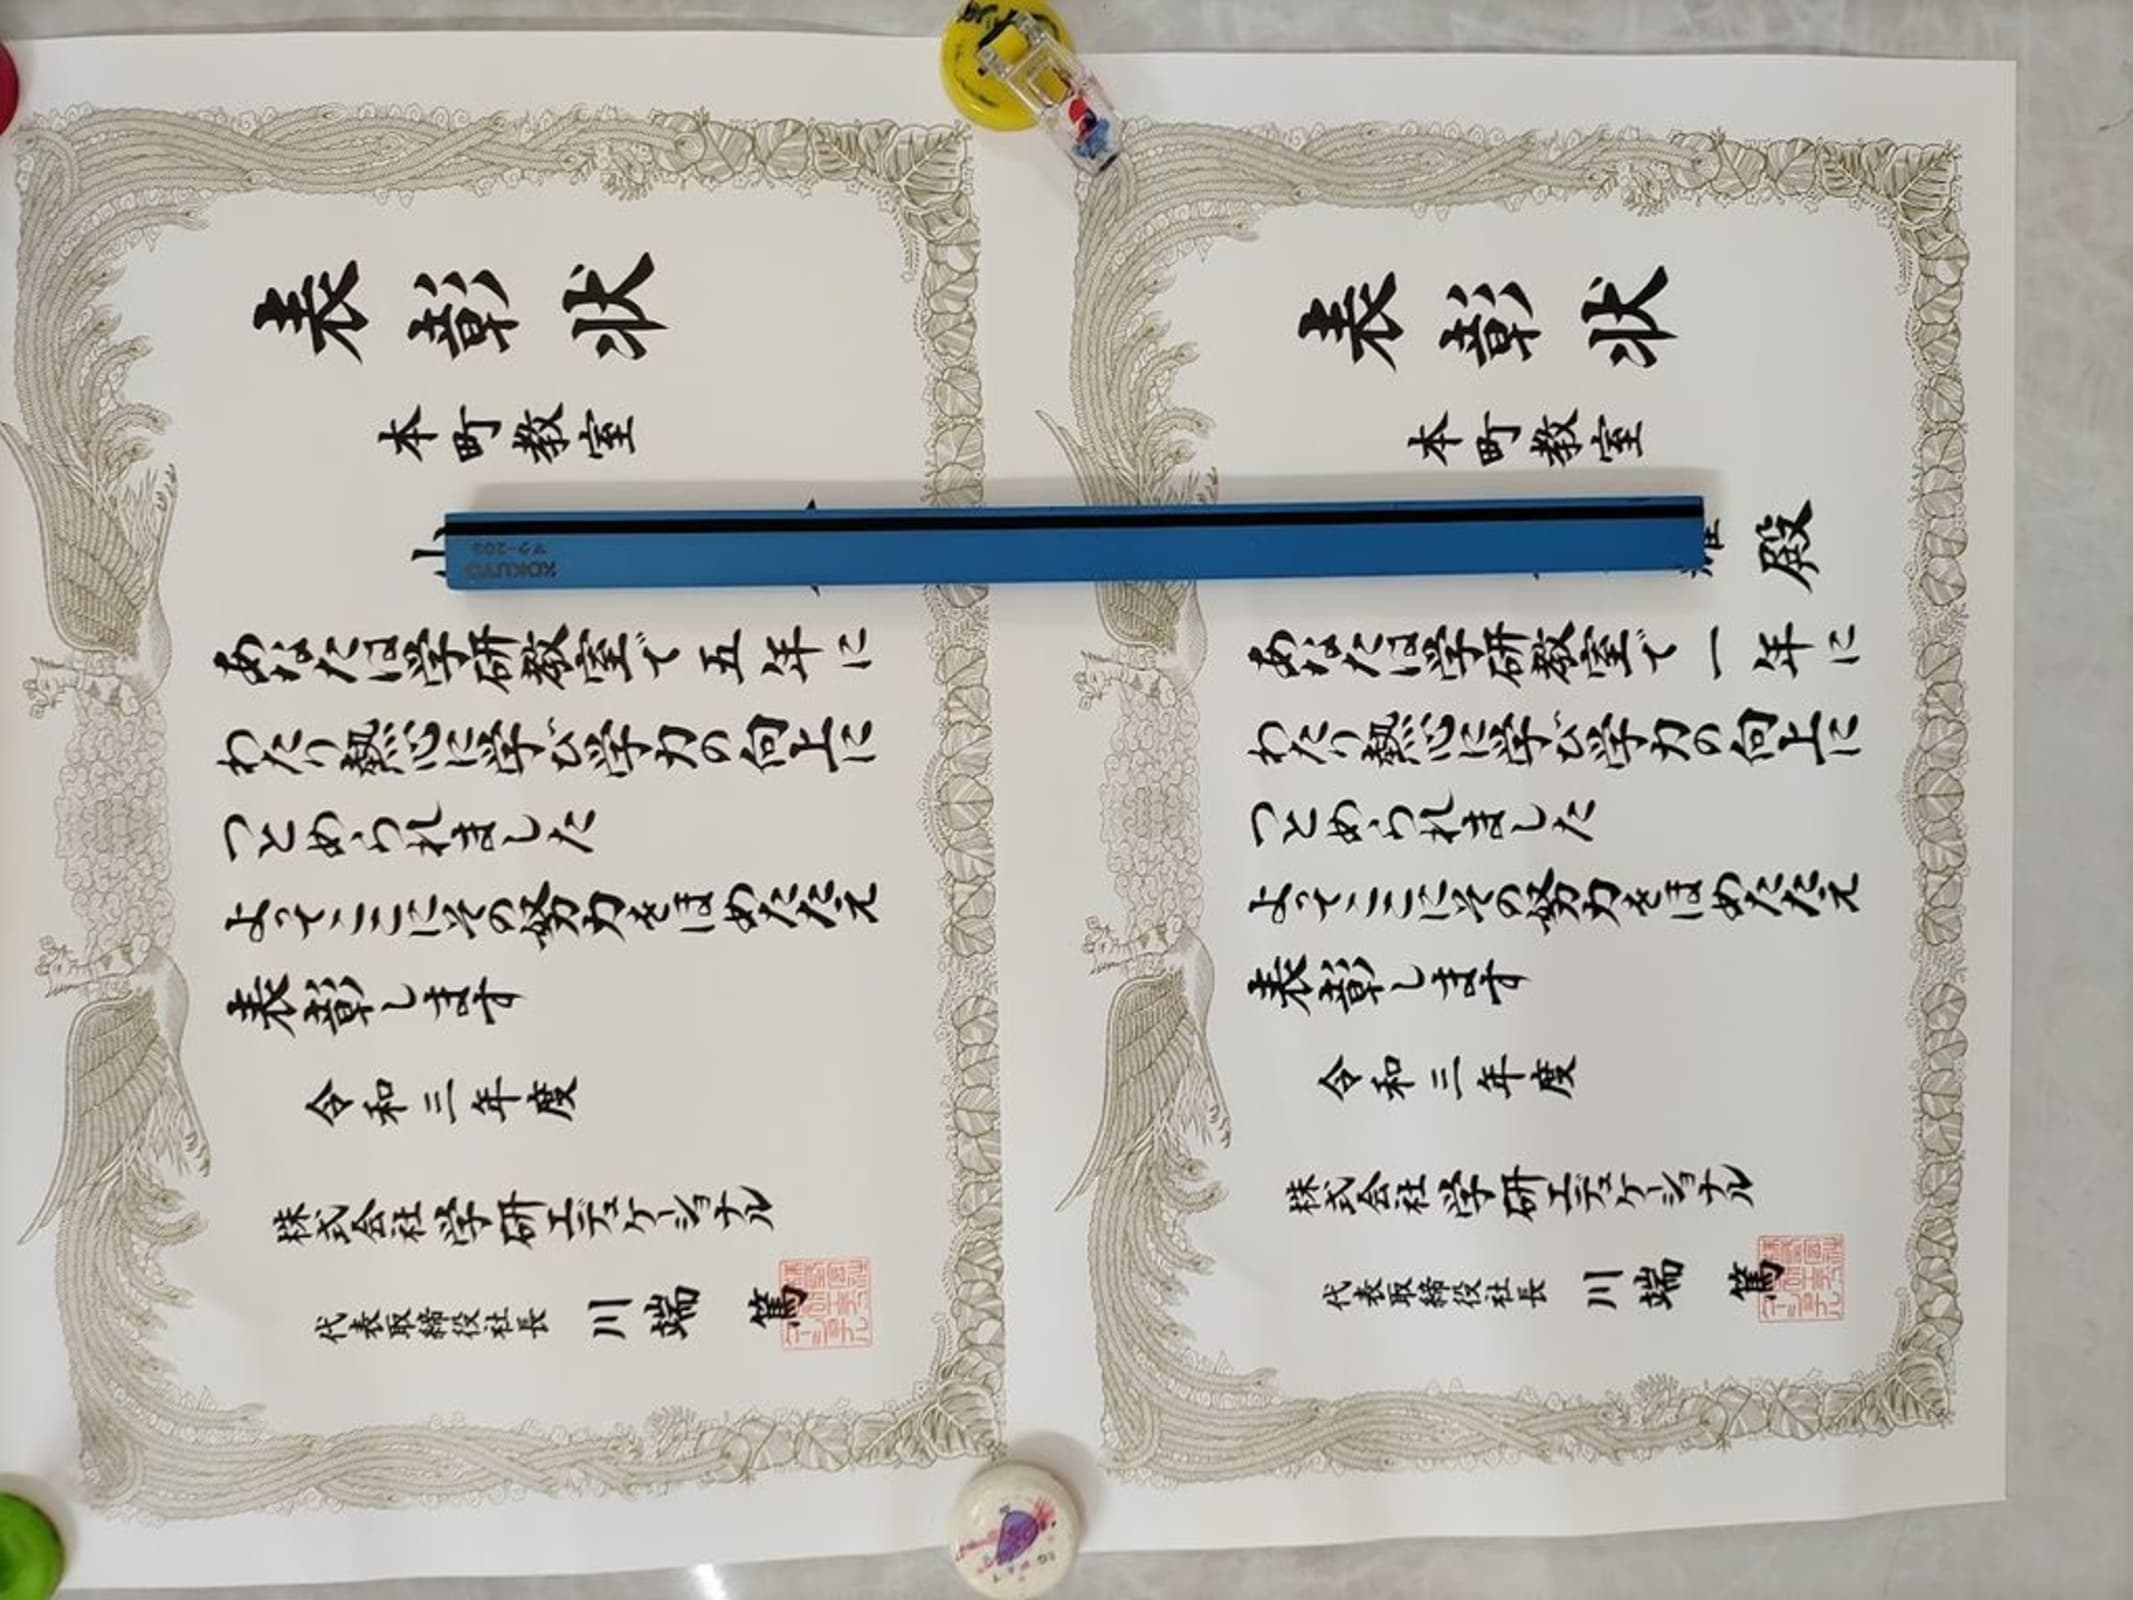 表彰状
本町教室
あなたは学研教室で五年に
わたり熱心に学び学力の向上に
つとめられました
よってここにその努力をほめたたえ
表彰します
令和三年度
株式会社学研エデュケーショナル
代表取締役社長 川端 篤
表彰状
本町教室
殿
あなたは学研教室で一年に
わたり熱心に学び学力の向上に
つとめられました
よってここにその努力をほめたたえ
表彰します
令和三年度
株式会社学研エデュケーショナル
代表取締役社長 川端 篤
KOKUYO
マク-203